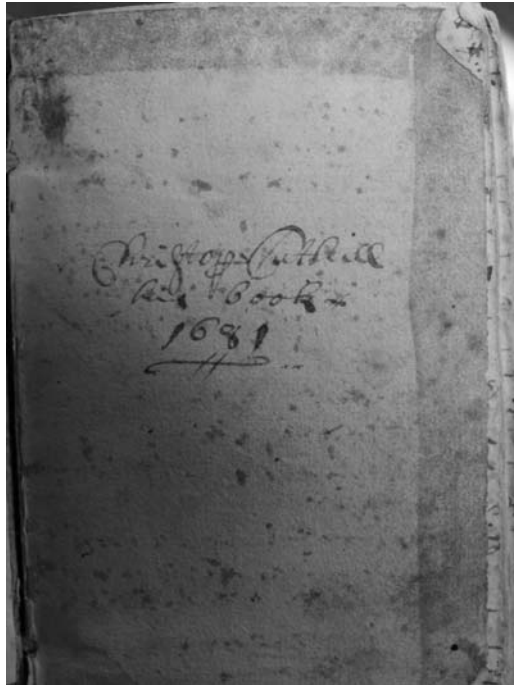 Christopher Cuthill
his booke
1681